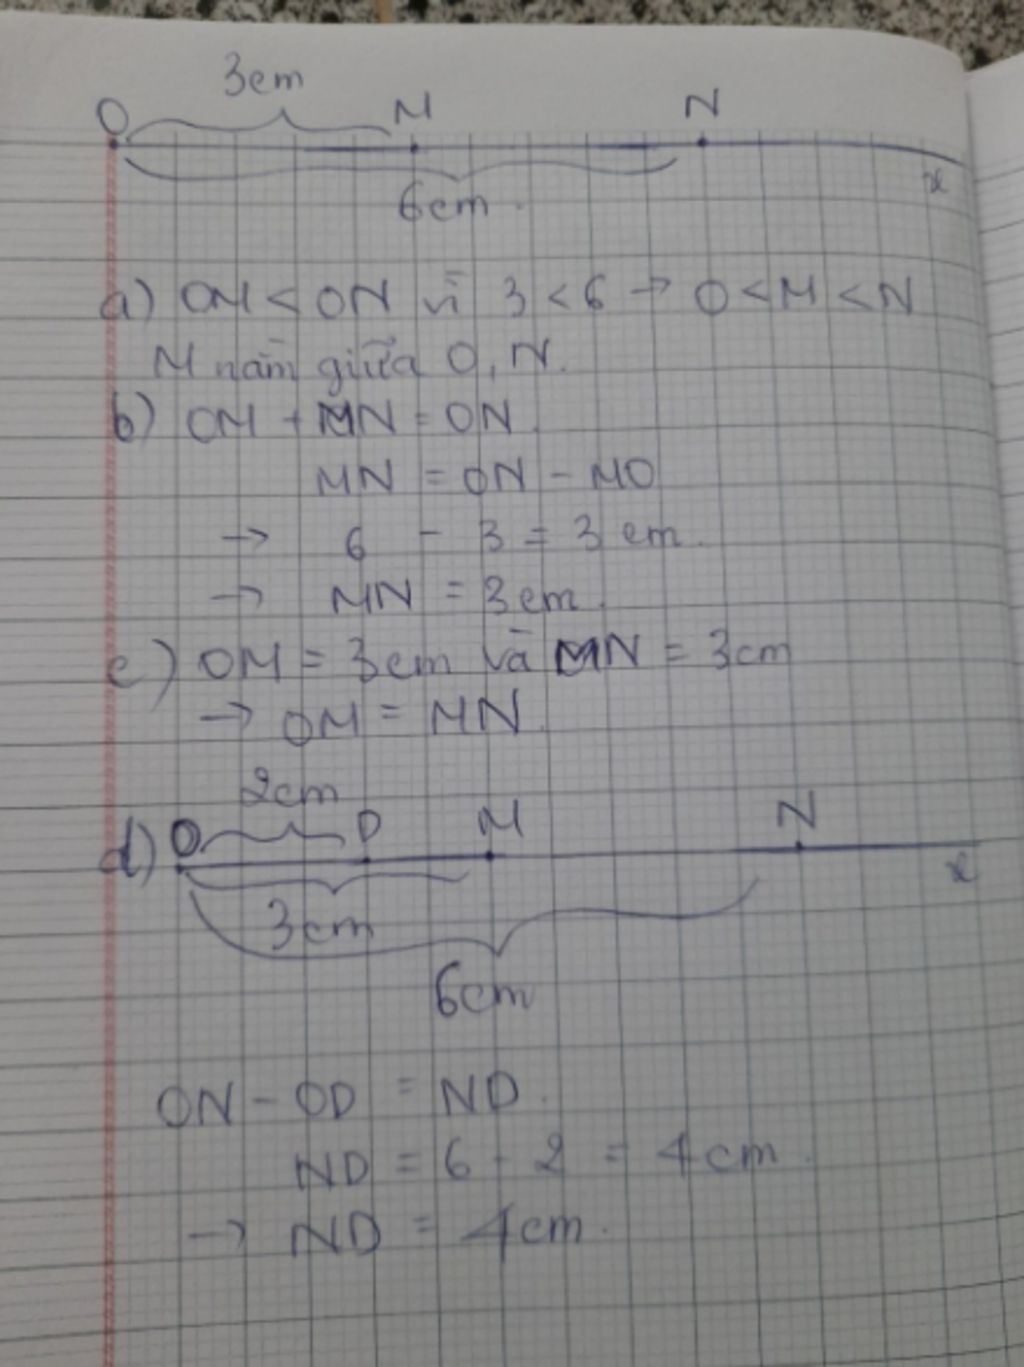 3cm
O M N
x
6cm.
a) OM < ON vì 3 < 6 → O < M < N
M nằm giữa O, N.
b) OM + MN = ON.
MN = ON - MO
→ 6 - 3 = 3 cm.
→ MN = 3cm.
c) OM = 3cm và MN = 3cm
→ OM = MN.
2cm
d) O D M N
x
3cm
6cm
ON - OD = ND.
ND = 6 - 2 = 4cm.
→ ND = 4cm.